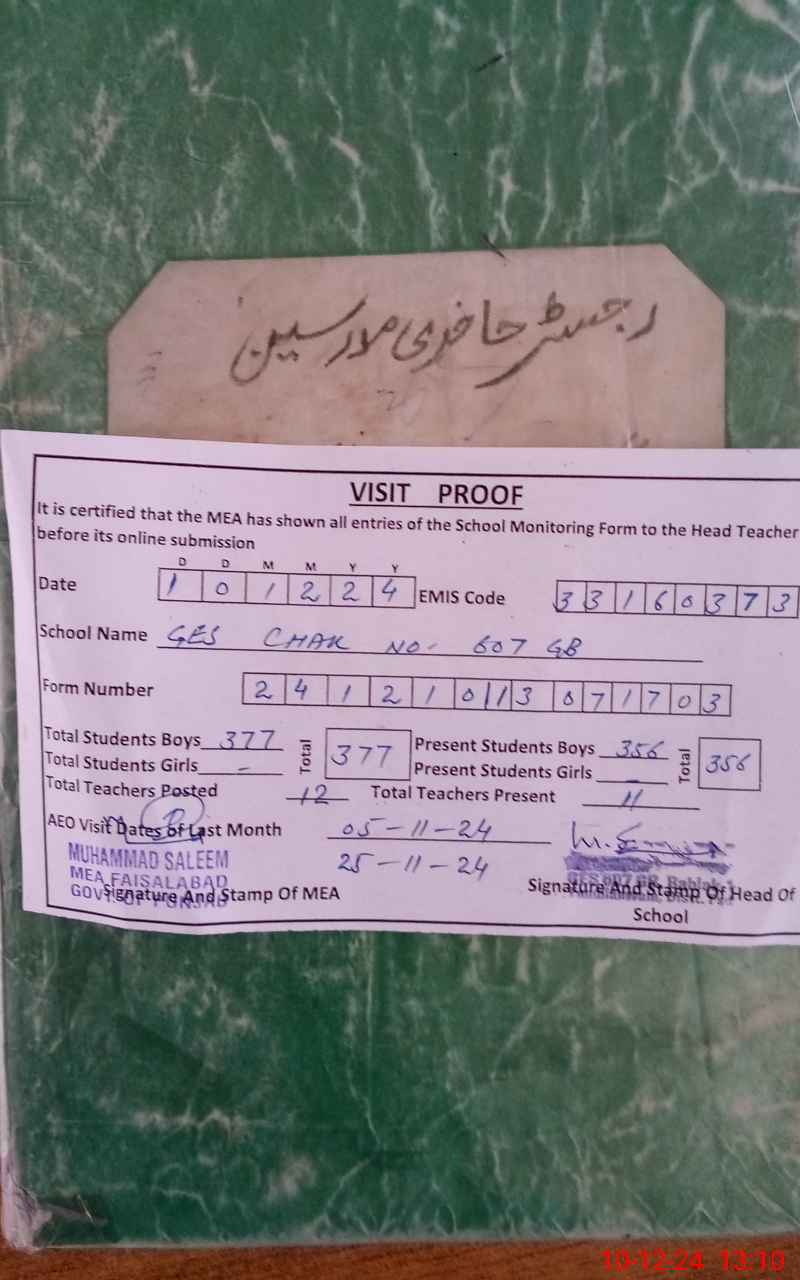 رجسٹر حاضری مدرسین
VISIT PROOF
It is certified that the MEA has shown all entries of the School Monitoring Form to the Head Teacher
before its online submission
D D M M Y Y
Date 1 0 1 2 2 4 EMIS Code 3 3 1 6 0 3 7 3
School Name GES CHAK NO- 607 GB
Form Number 2 4 1 2 1 0 1 3 0 7 1 7 0 3
Total Students Boys 377 Total 377 Present Students Boys 356 Total 356
Total Students Girls - Present Students Girls -
Total Teachers Posted 12 Total Teachers Present 11
AEO Visit Dates of Last Month 05-11-24
25-11-24
MUHAMMAD SALEEM
MEA FAISALABAD
GOVT OF PUNJAB
Signature And Stamp Of MEA
Signature And Stamp Of Head Of
School
10-12-24 13:10